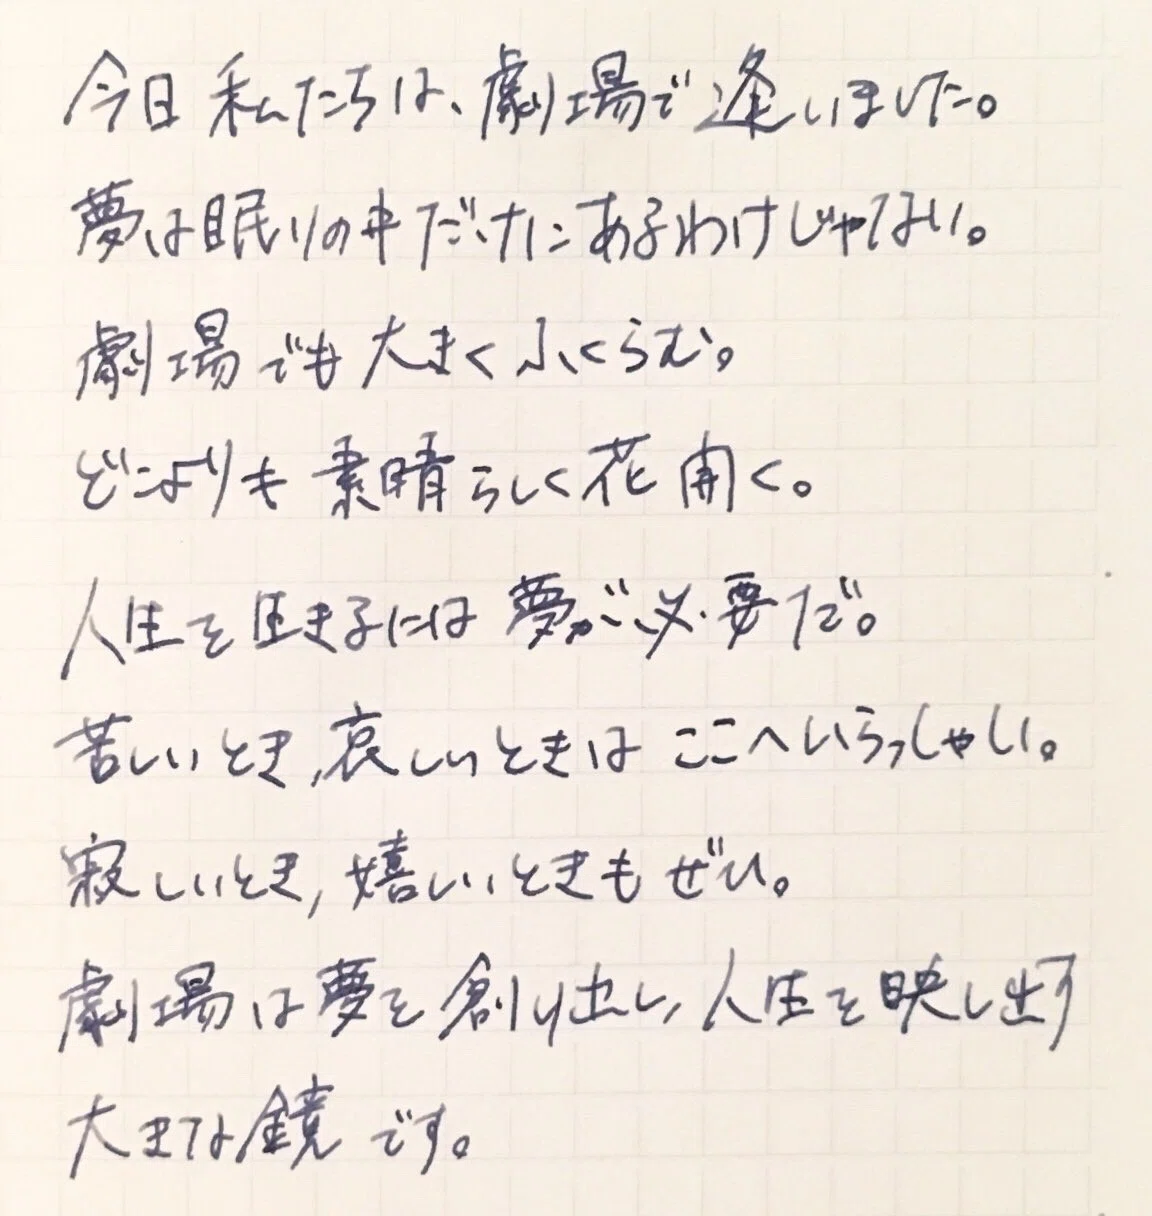 今日私たちは、劇場で逢いました。
夢は眠りの中だけにあるわけじゃない。
劇場でも大きくふくらむ。
どこよりも素晴らしく花開く。
人生を生きるには夢が必要だ。
苦しいとき,哀しいときはここへいらっしゃい。
寂しいとき,嬉しいときもぜひ。
劇場は夢を創り出し,人生を映し出す
大きな鏡です。